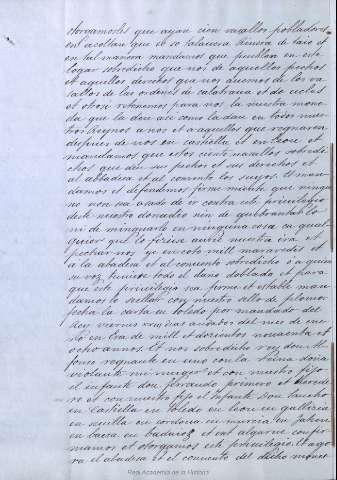 otorgamosles que ayan cien vasallos pobladores
en Cacalan que es so Talauera ribera de taio et
en tal manera mandamos que pueblen en este
logar sobredicho que nos de aquellos pechos
et aquellos derechos que nos auemos de los va
sallos de las ordenes de calatraua et de ucles
et otrosi retenemos para nos la nuestra mone
da que la den asi como la dan en todos nues
tros Reynos a nos et a aquellos que regnaren
despues de nos en castiella et en leon et
mandamos que estos cient vasallos sobredi
chos que den sus pechos et sus derechos et
al abadesa et al conuento los suyos. Et man
damos et defendemos firme miente que ningu
no non sea osado de ir contra este priuilegio
deste nuestro donadio nin de quebrantarlo
ni de minguarlo en ninguna cosa ca qual
quier que lo ficiese aurie nuestra ira et
pechar nos ie en coto mill marauedis et
a la abadesa et al conuento sobredicho o a quien
su voz tuuiese todo el daño doblado et para
que este priuilegio sea firme et estable man
damoslo seellar con nuestro sello de plomo
fecha la carta en toledo por mandado del
Rey viernes dias andados del mes de
en Era de mill et docientos nouaenta et
ocho annos. Et nos sobredicho rey don Al
fonso regnante en uno con la Reina doña
violante mi muger et con nuestro fijo
el enfante don ferrando primero et herede
ro et con nuestro fijo el Infante don Sancho
en Castiella en toledo en leon en gallizia
en seuilla en cordoua en murcia en Jahen
en baeça en badaioz et en el algarue confir
mamos et otorgamos este priuilegio. Et ago
ra el abadesa et el conuento del dicho mones
Real Academia de la Historia